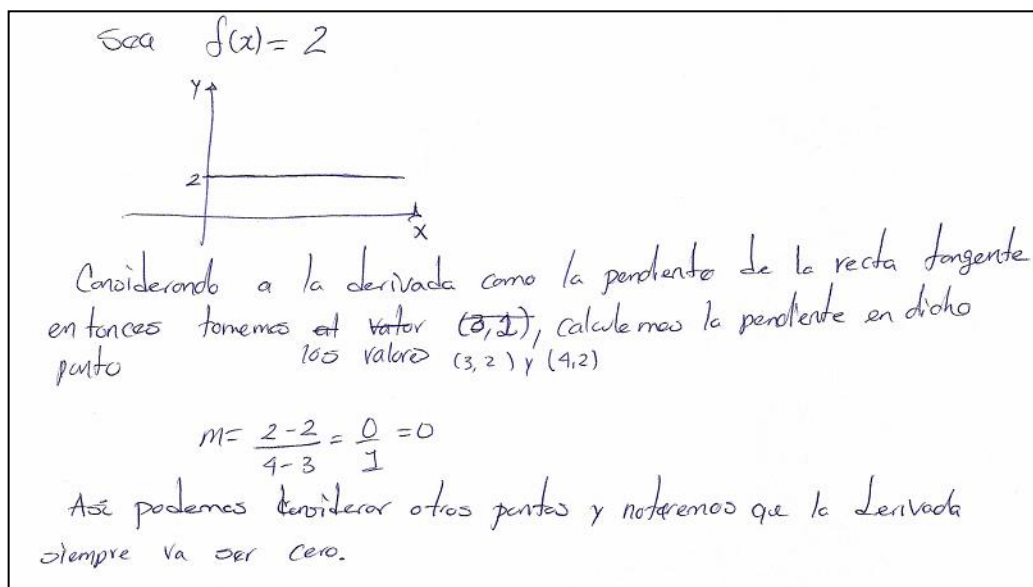 Sea f(x)= 2
Y
2
X
Considerando a la derivada como la pendiente de la recta tangente
entonces tomemos el valor (3,2), calculemos la pendiente en dicho
punto los valores (3,2) y (4,2)
m= 2-2 / 4-3 = 0/1 =0
Así podemos considerar otros puntos y notaremos que la derivada
siempre va ser cero.